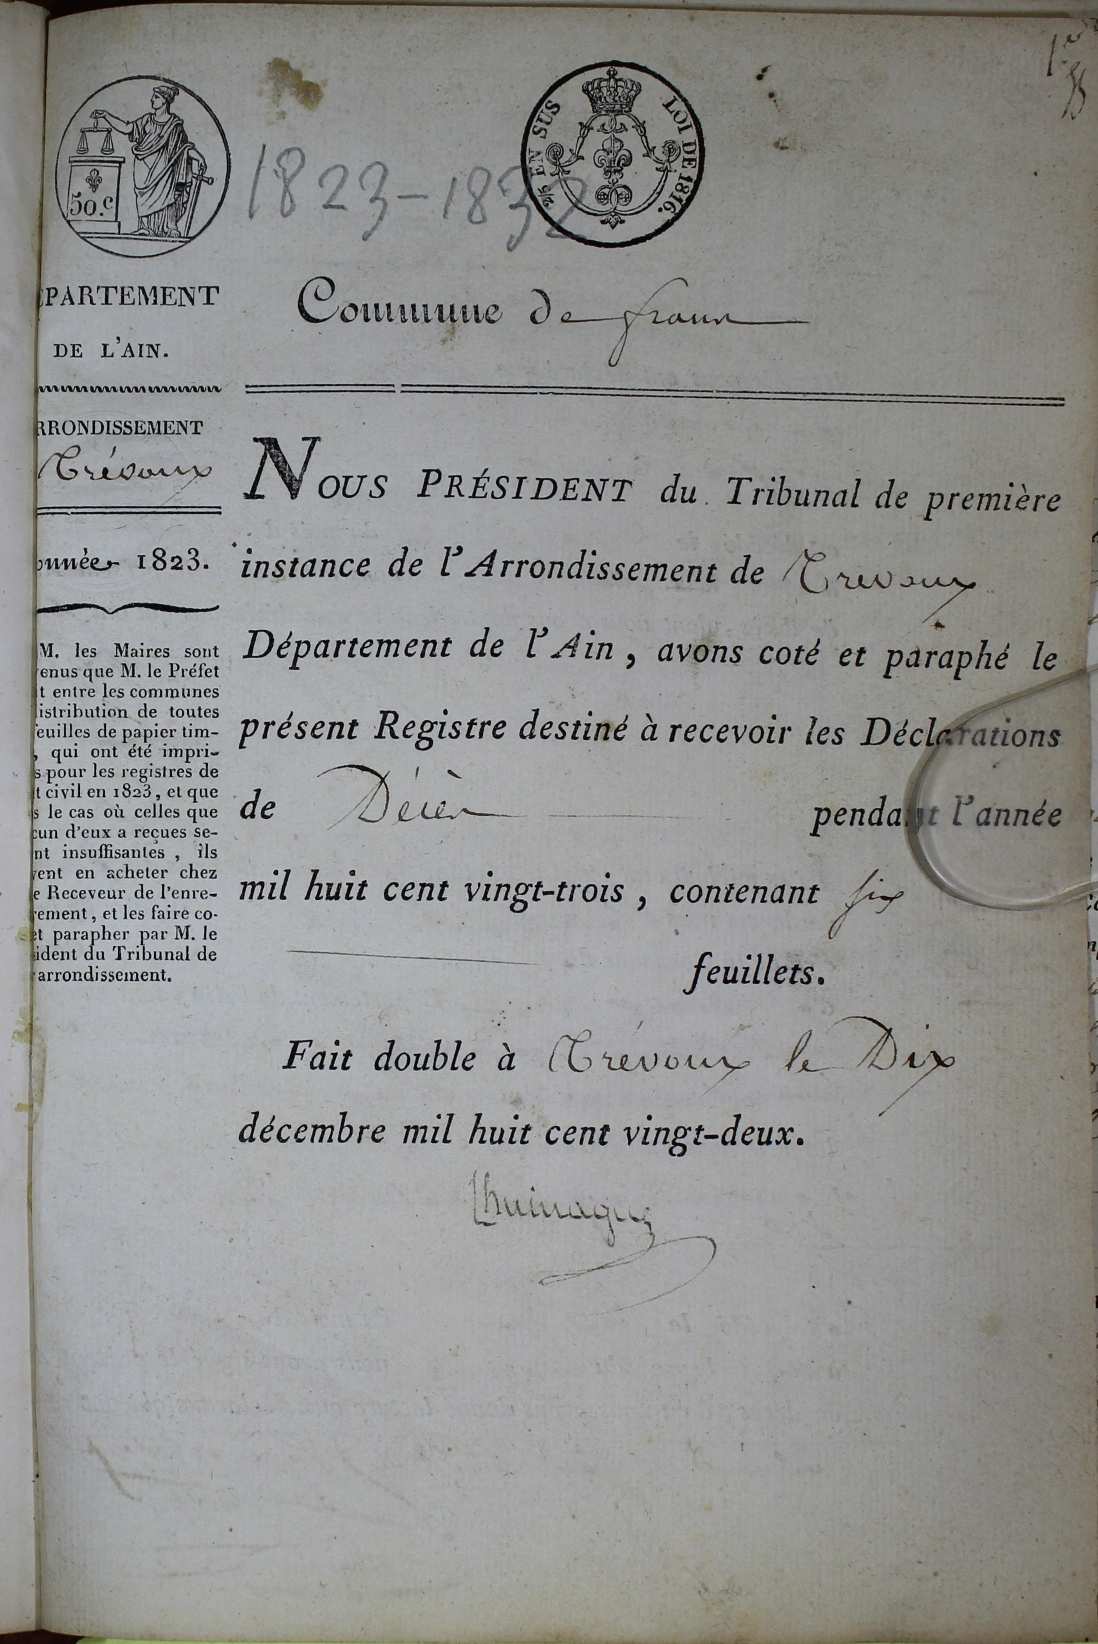 1er
50.c
2/5 EN SUS
LOI DE 1816.
1823-1832
ÉPARTEMENT
DE L'AIN.
RRONDISSEMENT
Trévoux
année 1823.
M. les Maires sont
enus que M. le Préfet
t entre les communes
istribution de toutes
euilles de papier tim-
, qui ont été impri-
s pour les registres de
t civil en 1823, et que
s le cas où celles que
cun d'eux a reçues se-
nt insuffisantes , ils
vent en acheter chez
e Receveur de l'enre-
rement, et les faire co-
et parapher par M. le
ident du Tribunal de
arrondissement.
Commune de frans
NOUS PRÉSIDENT du Tribunal de première
instance de l'Arrondissement de Trevoux
Département de l'Ain , avons coté et paraphé le
présent Registre destiné à recevoir les Déclarations
de Décès pendant l'année
mil huit cent vingt-trois , contenant six
feuillets.
Fait double à Trévoux le Dix
décembre mil huit cent vingt-deux.